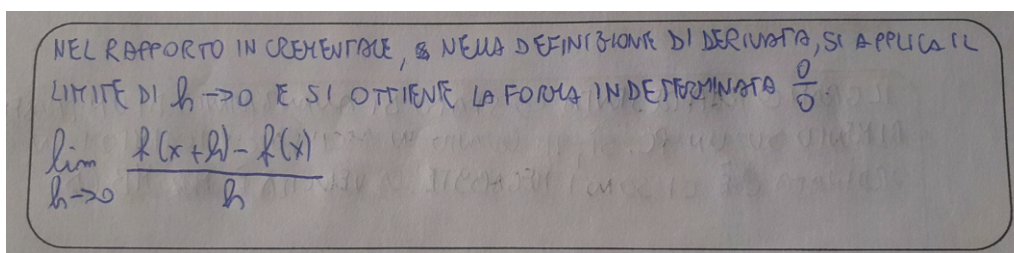 NEL RAPPORTO INCREMENTALE, NELLA DEFINIZIONE DI DERIVATA, SI APPLICA IL
LIMITE DI h → 0 E SI OTTIENE LA FORMA INDETERMINATA 0/0.
lim h→0 f(x+h) - f(x) / h